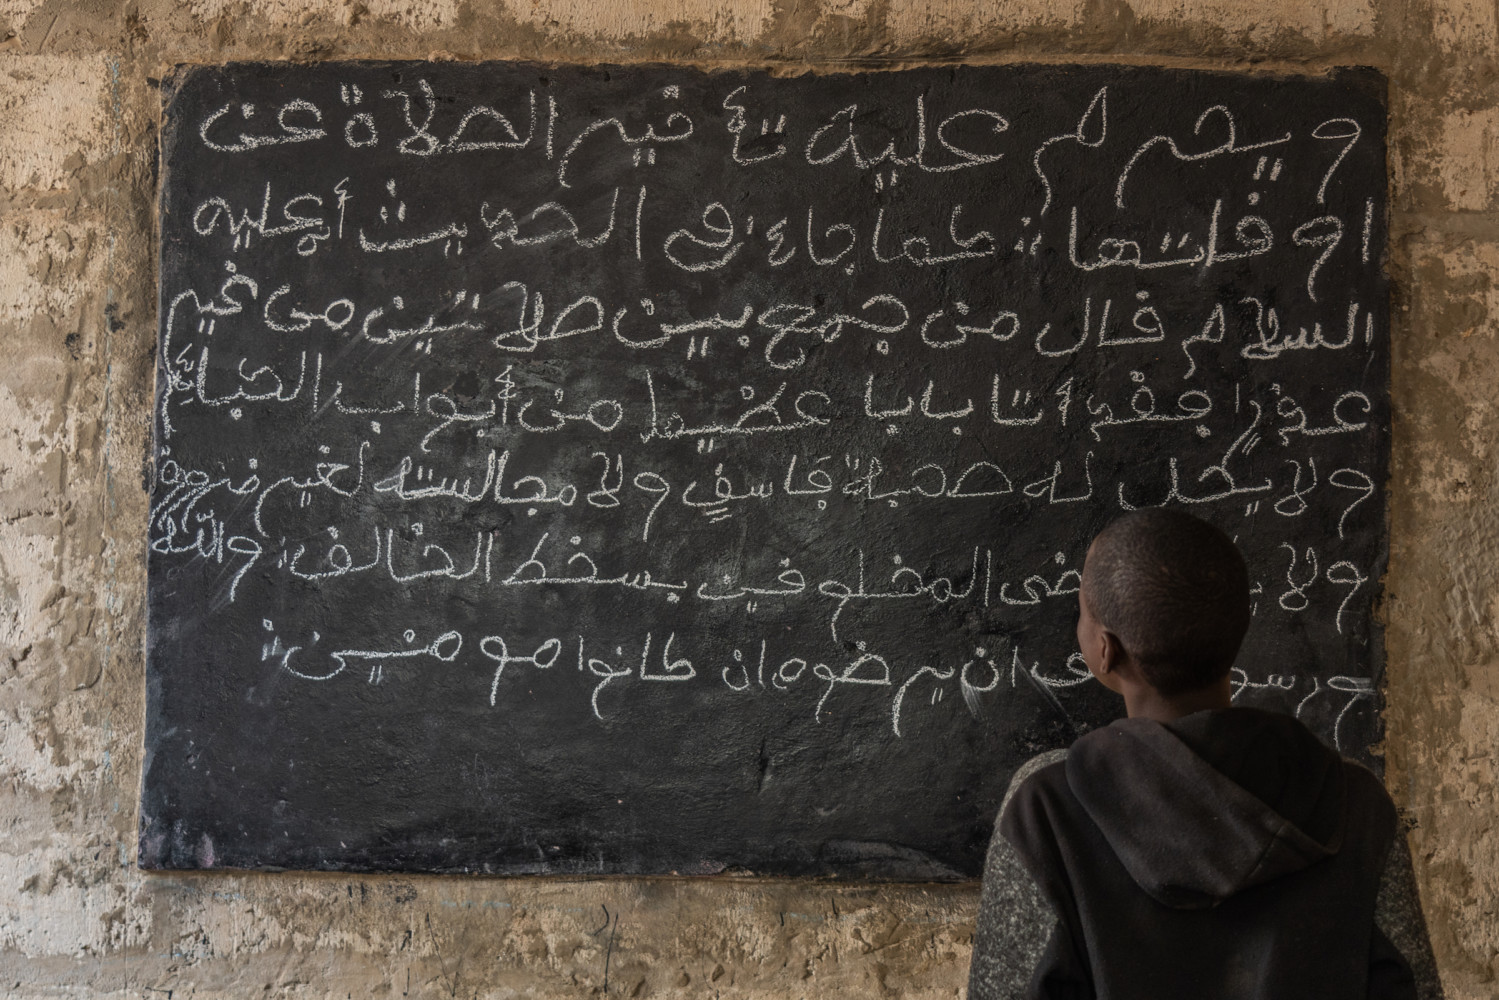 ويحرم عليه تأخير الصلاة عن
اوقاتها كما جاء في الحديث أعليه
السلام قال من جمع بين صلاتين من غير
عذر فقد أتا بابا عظيما من أبواب الكبائر
ولا يحل له صحبة فاسق ولا مجالسته لغير ضرورة
ولا المخلوقين بسخط الخالق والله
ان يرضوه ان كانوا مومنين